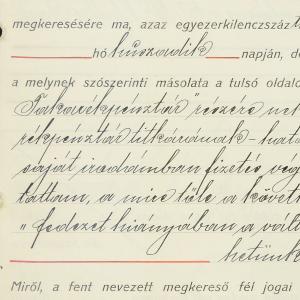 megkeresésére ma, azaz egyezerkilenczszáz
hó huszadik napján, de
a melynek szószerinti másolata a tulsó oldalo
Takarékpénztár" részére nek
rékpénztár titkárának - hata
saját irodámban fizetés vég
tattam, a mire tőle a követk
"fedezet hiányában a vált
hetünk
Miről, a fent nevezett megkereső fél jogai